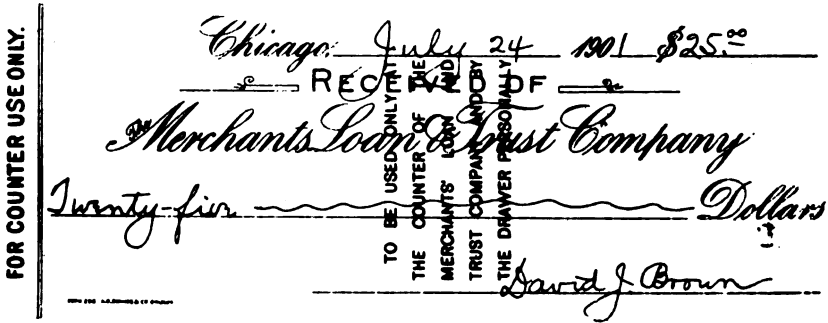 FOR COUNTER USE ONLY.
Chicago, July 24 1901 $25.00
RECEIVED OF
The Merchants Loan & Trust Company
Twenty-five Dollars
TO BE USED ONLY AT
THE COUNTER OF THE
MERCHANTS' LOAN AND
TRUST COMPANY AND BY
THE DRAWER PERSONALLY
David J. Brown